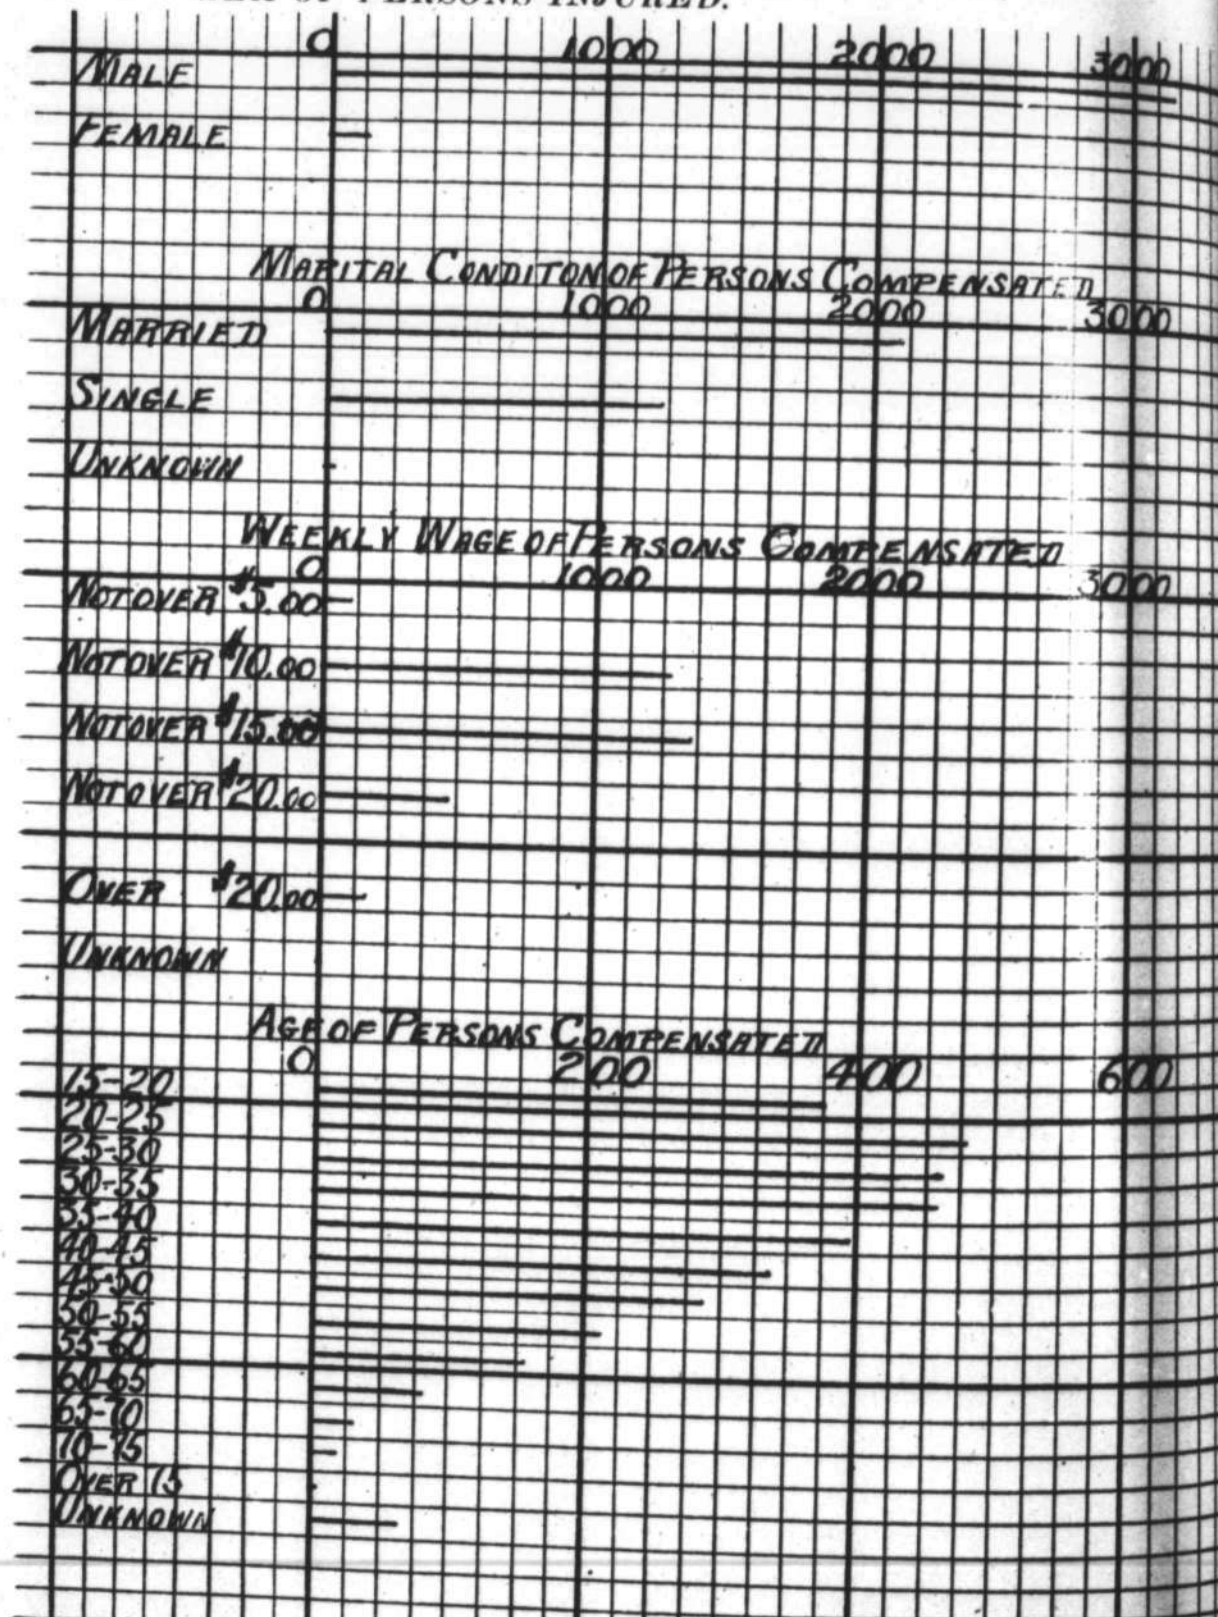 PERSONS INJURED.
0 1000 2000 3000
MALE
FEMALE
MARITAL CONDITON OF PERSONS COMPENSATED
0 1000 2000 3000
MARRIED
SINGLE
UNKNOWN
WEEKLY WAGE OF PERSONS COMPENSATED
0 1000 2000 3000
NOT OVER $5.00
NOT OVER $10.00
NOT OVER $15.00
NOT OVER $20.00
OVER $20.00
UNKNOWN
AGE OF PERSONS COMPENSATED
0 200 400 600
15-20
20-25
25-30
30-35
35-40
40-45
45-50
50-55
55-60
60-65
65-70
70-75
OVER 75
UNKNOWN